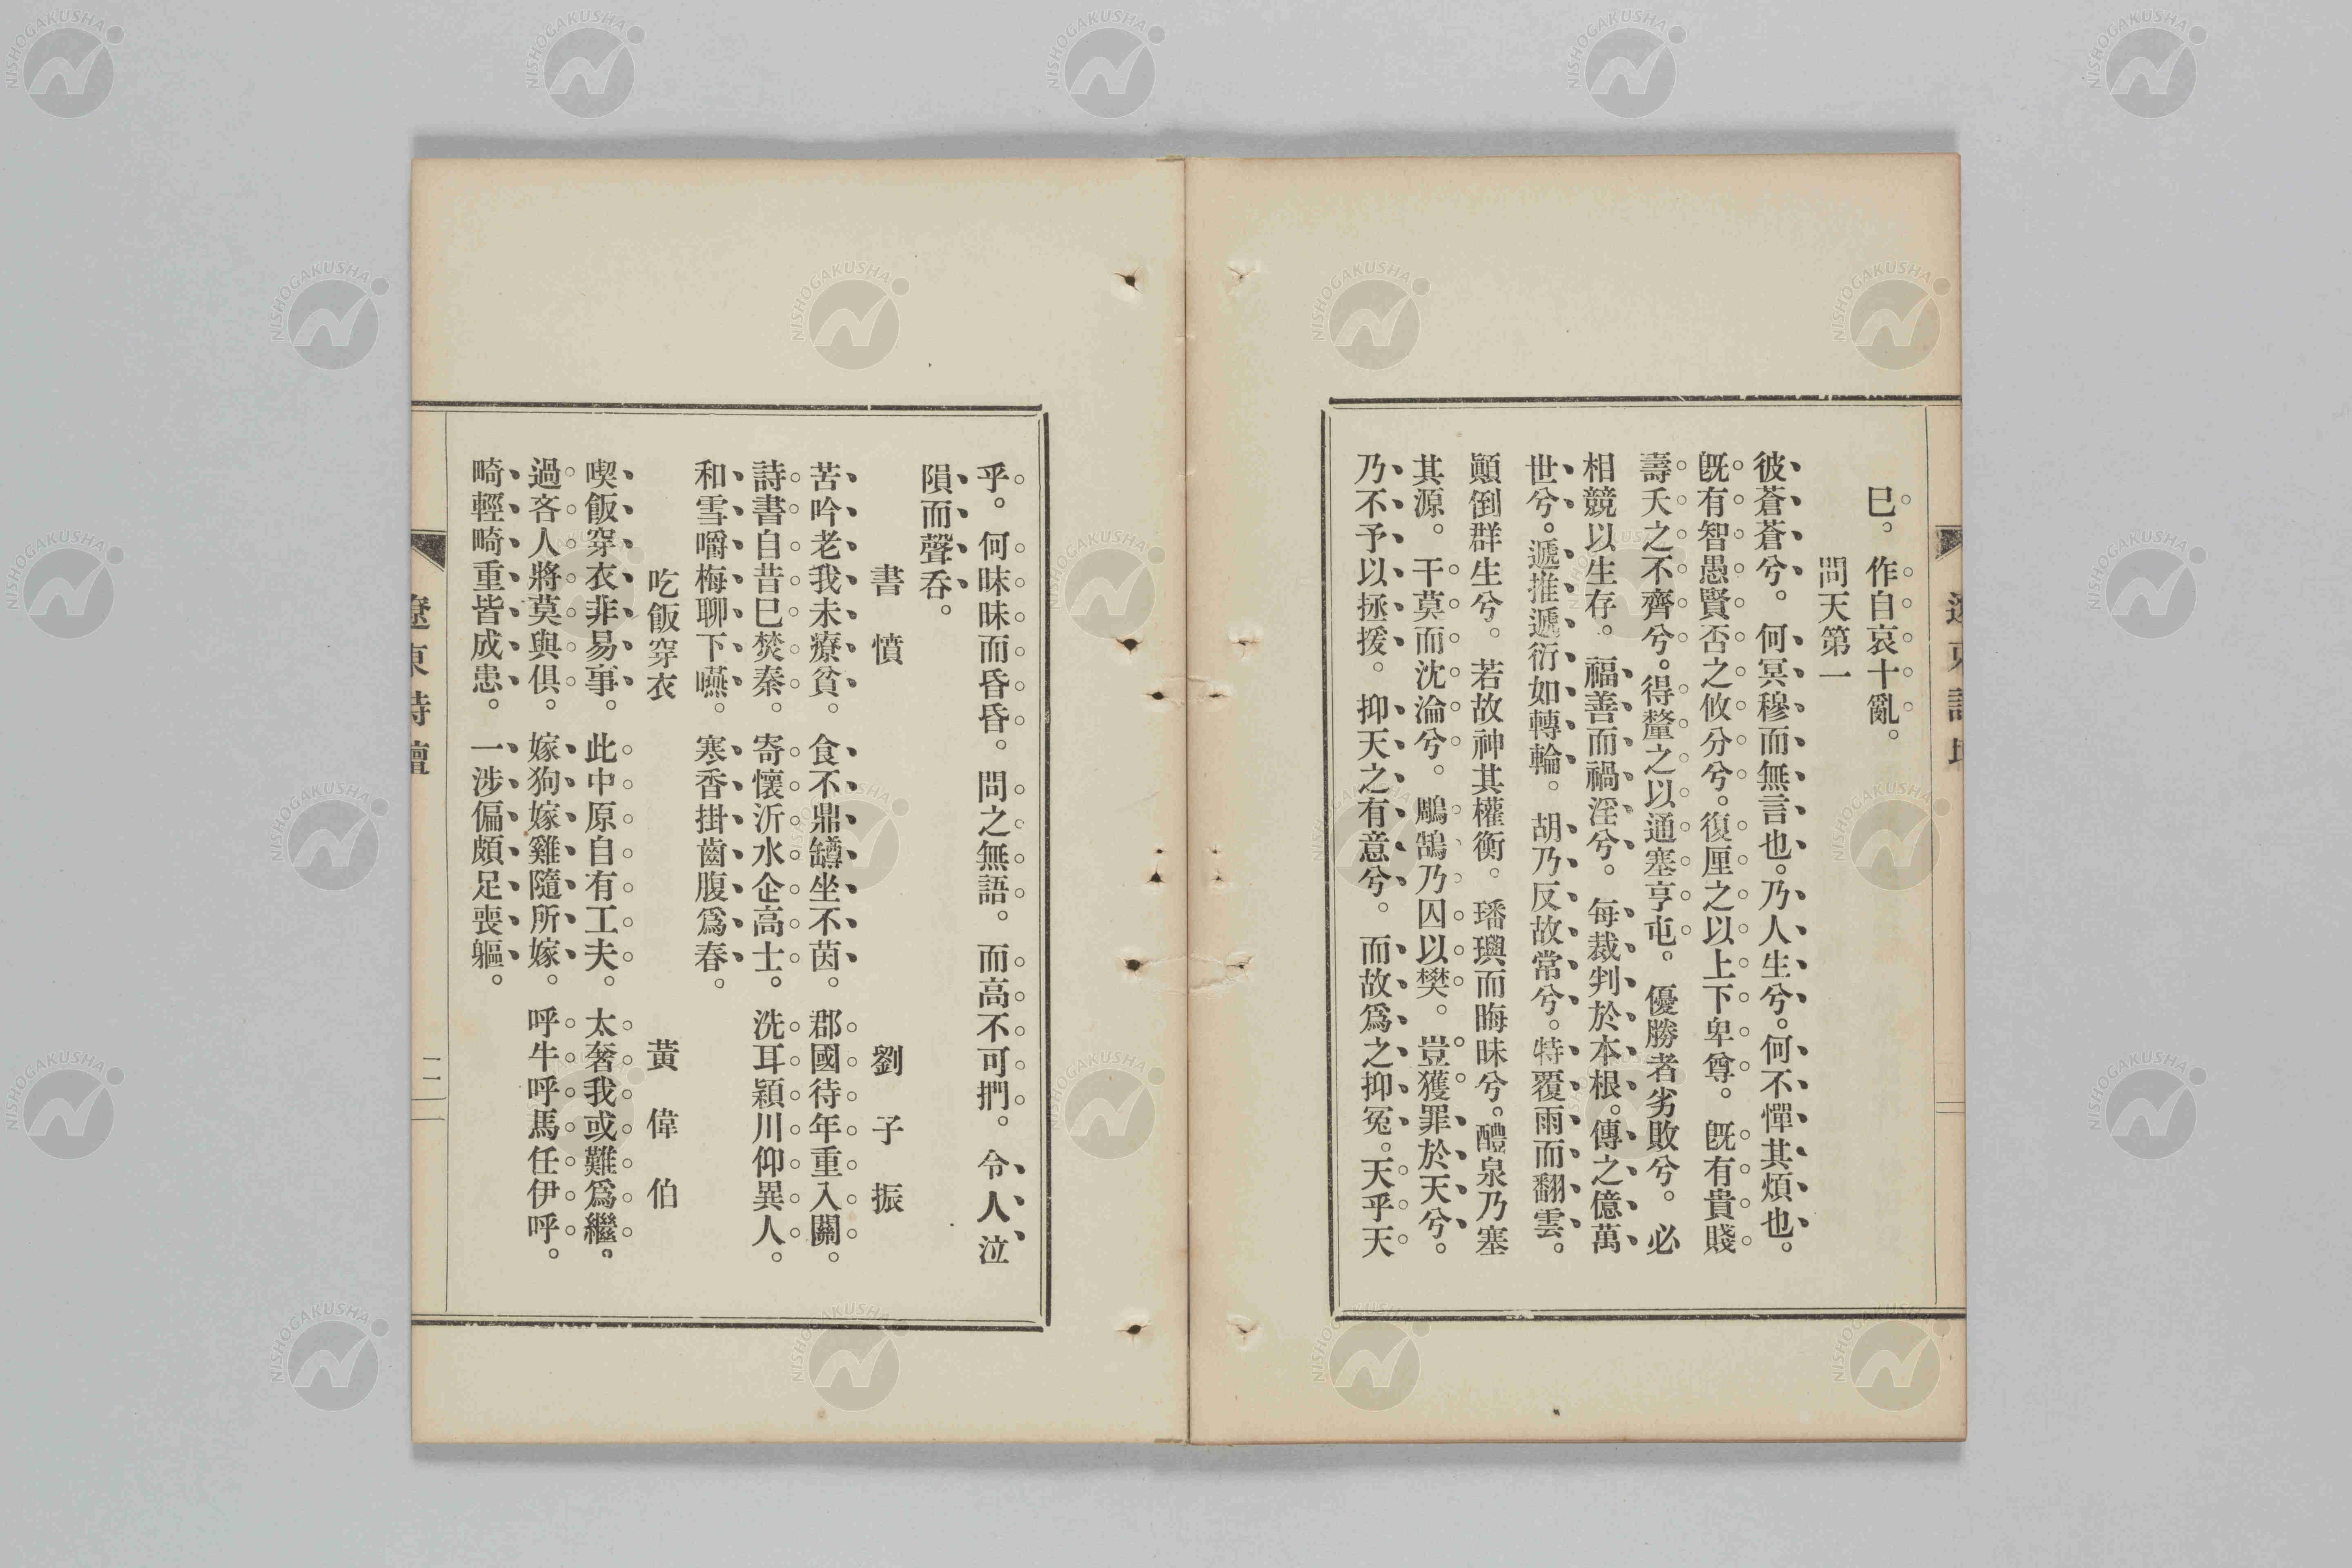 巳。作自哀十亂。
問天第一
彼蒼蒼兮。何冥穆而無言也。乃人生兮。何不憚其煩也。
旣有智愚賢否之攸分兮。復厘之以上下卑尊。旣有貴賤
壽夭之不齊兮。得釐之以通塞亨屯。優勝者劣敗兮。必
相競以生存。福善而禍淫兮。每裁判於本根。傳之億萬
世兮。遞推遞衍如轉輪。胡乃反故常兮。特覆雨而翻雲。
顚倒群生兮。若故神其權衡。璠璵而晦昧兮。醴泉乃塞
其源。干莫而沈淪兮。鵰鶚乃囚以樊。豈獲罪於天兮。
乃不予以拯援。抑天之有意兮。而故爲之抑冤。天乎天
遼東詩壇
乎。何昧昧而昏昏。問之無語。而高不可捫。令人泣
隕而聲呑。
書憤　劉子振
苦吟老我未療貧。食不鼎罇坐不茵。郡國待年重入關。
詩書自昔巳焚秦。寄懷沂水企高士。洗耳潁川仰異人。
和雪嚼梅聊下嚥。寒香掛齒腹爲春。
吃飯穿衣　黃偉伯
喫飯穿衣非易事。此中原自有工夫。太奢我或難爲繼。
過吝人將莫與俱。嫁狗嫁雞隨所嫁。呼牛呼馬任伊呼。
畸輕畸重皆成患。一涉偏頗足喪軀。
遼東詩壇
二二
NISHOGAKUSHA